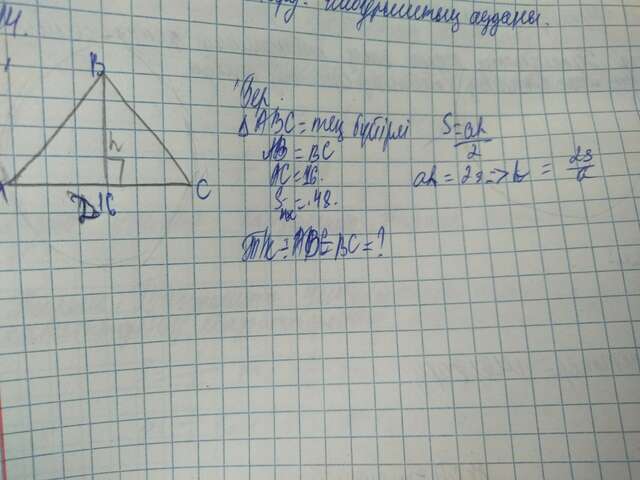 14.
үшбұрыштың ауданы.
B
h
A
D 16
C
Бер.
Δ ABC = тең бүйірлі
AB = BC
AC = 16.
S = 48.
Т/к = AB = BC = ?
S = ah/2
ah = 2s => h = 2s/a